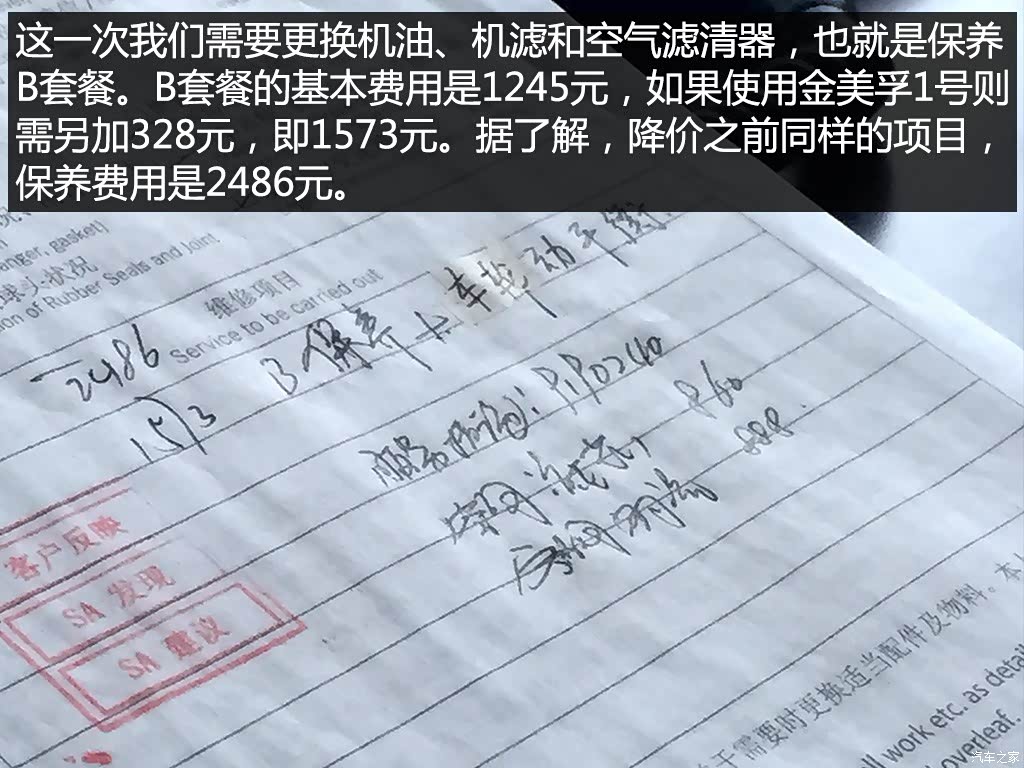 这一次我们需要更换机油、机滤和空气滤清器，也就是保养
B套餐。B套餐的基本费用是1245元，如果使用金美孚1号则
需另加328元，即1573元。据了解，降价之前同样的项目，
保养费用是2486元。
anger, gasket)
球头状况
ion of Rubber Seals and Joint
维修项目
Service to be carried out
2486
B保养+车轮动平衡
1573
860
888
客户反映
SA 发现
SA 建议
需要时更换适当配件及物料。本
ll work etc. as detail
overleaf.
汽车之家